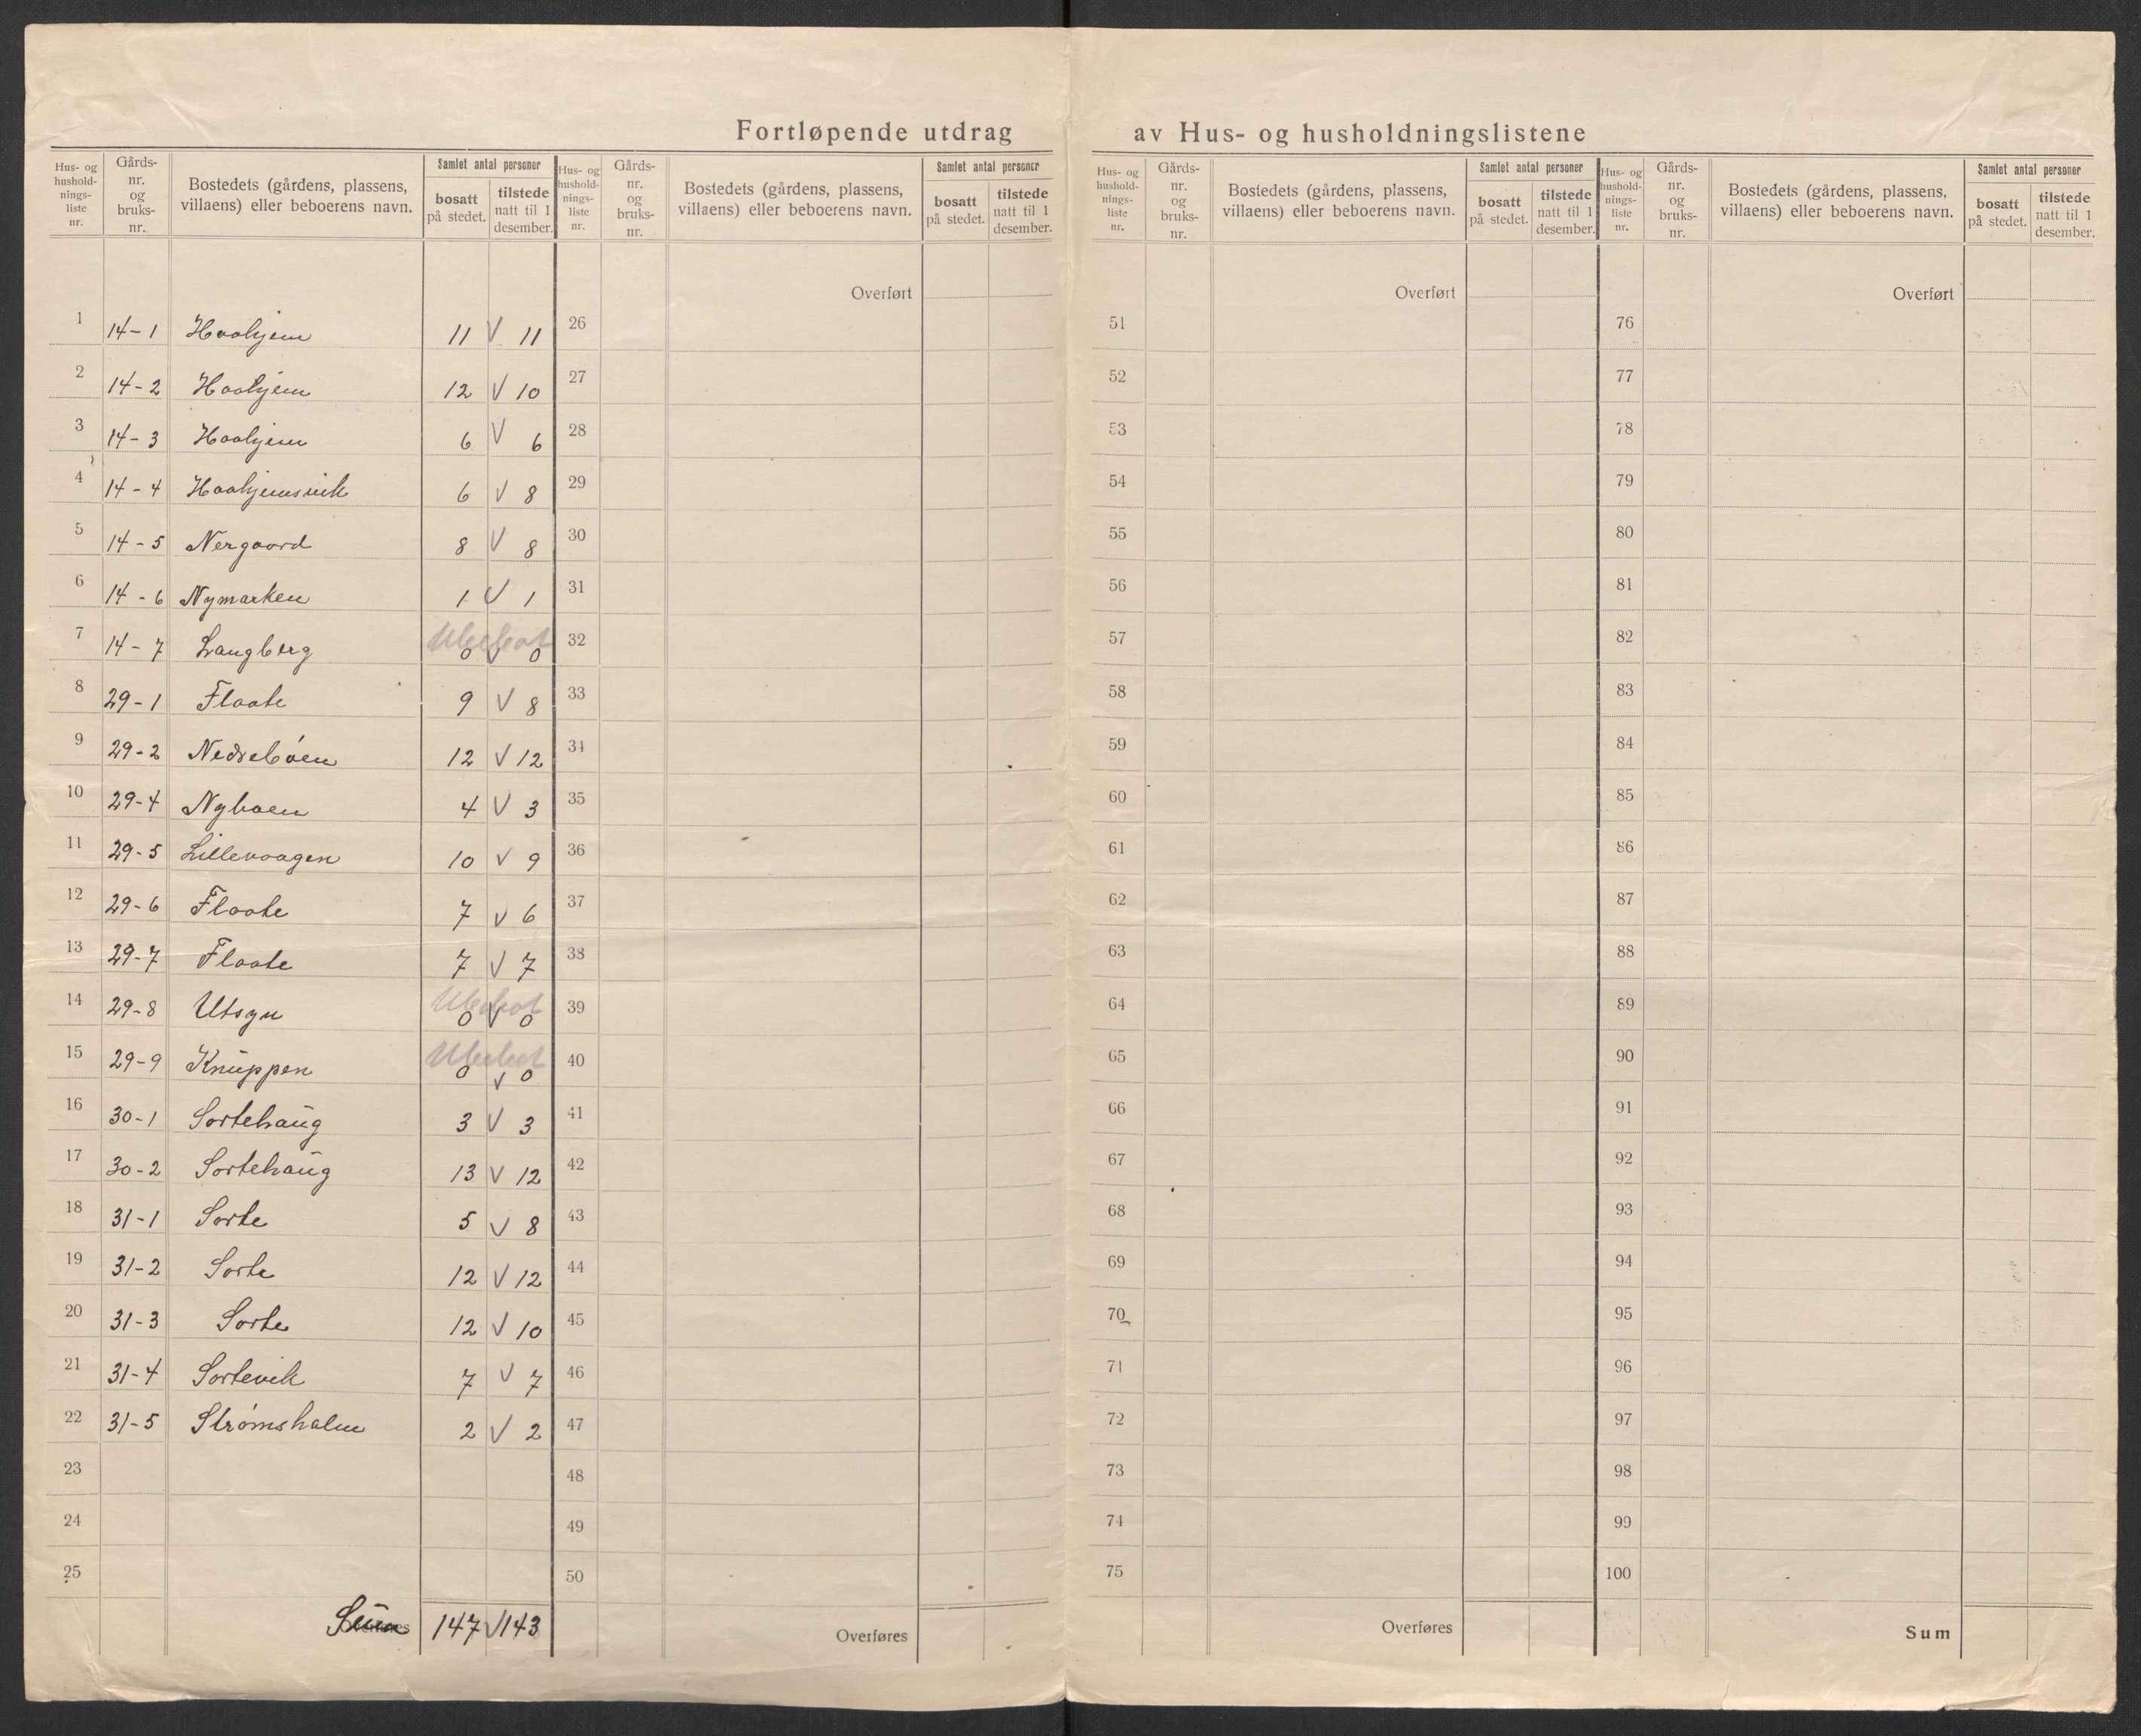 Fortløpende utdrag av Hus- og husholdningslistene
Hus- og husholdningsliste nr. Gårdsnr. og bruksnr. Bostedets (gårdens, plassens, villaens) eller beboerens navn. Samlet antal personer bosatt på stedet. tilstede natt til 1 desember.
Hus- og husholdningsliste nr. Gårdsnr. og bruksnr. Bostedets (gårdens, plassens, villaens) eller beboerens navn. Samlet antal personer bosatt på stedet. tilstede natt til 1 desember.
Hus- og husholdningsliste nr. Gårdsnr. og bruksnr. Bostedets (gårdens, plassens, villaens) eller beboerens navn. Samlet antal personer bosatt på stedet. tilstede natt til 1 desember.
Hus- og husholdningsliste nr. Gårdsnr. og bruksnr. Bostedets (gårdens, plassens, villaens) eller beboerens navn. Samlet antal personer bosatt på stedet. tilstede natt til 1 desember.
1 14-1 Haahjem 11 V 11
2 14-2 Haahjem 12 V 10
3 14-3 Haahjem 6 V 6
4 14-4 Haahjemsvik 6 V 8
5 14-5 Nergaard 8 V 8
6 14-6 Nymarken 1 V 1
7 14-7 Langberg Ubebot 0 V 0
8 29-1 Flaate 9 V 8
9 29-2 Nedrebøen 12 V 12
10 29-4 Nyboen 4 V 3
11 29-5 Lillevaagen 10 V 9
12 29-6 Flaate 7 V 6
13 29-7 Flaate 7 V 7
14 29-8 Utsyn Ubebot 0 V 0
15 29-9 Knuppen Ubebot 0 V 0
16 30-1 Sortehaug 3 V 3
17 30-2 Sortehaug 13 V 12
18 31-1 Sorte 5 V 8
19 31-2 Sorte 12 V 12
20 31-3 Sorte 12 V 10
21 31-4 Sortevik 7 V 7
22 31-5 Strømsholm 2 V 2
23
24
25
Sum 147 V 143
Overført
26
27
28
29
30
31
32
33
34
35
36
37
38
39
40
41
42
43
44
45
46
47
48
49
50
Overføres
Overført
51
52
53
54
55
56
57
58
59
60
61
62
63
64
65
66
67
68
69
70
71
72
73
74
75
Overføres
Overført
76
77
78
79
80
81
82
83
84
85
86
87
88
89
90
91
92
93
94
95
96
97
98
99
100
Sum